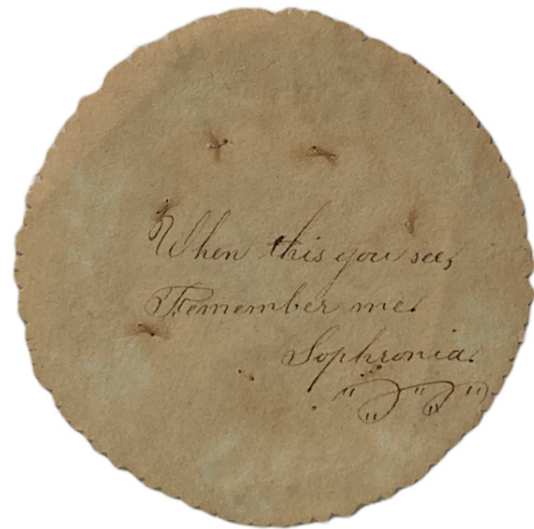 When this you see,
Remember me.
Sophronia.